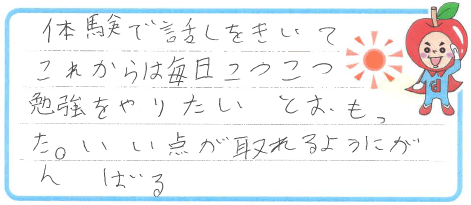 体験で話しをきいて
これからは毎日コツコツ
勉強をやりたいとおもっ
た。いい点が取れるようにが
んばる
d